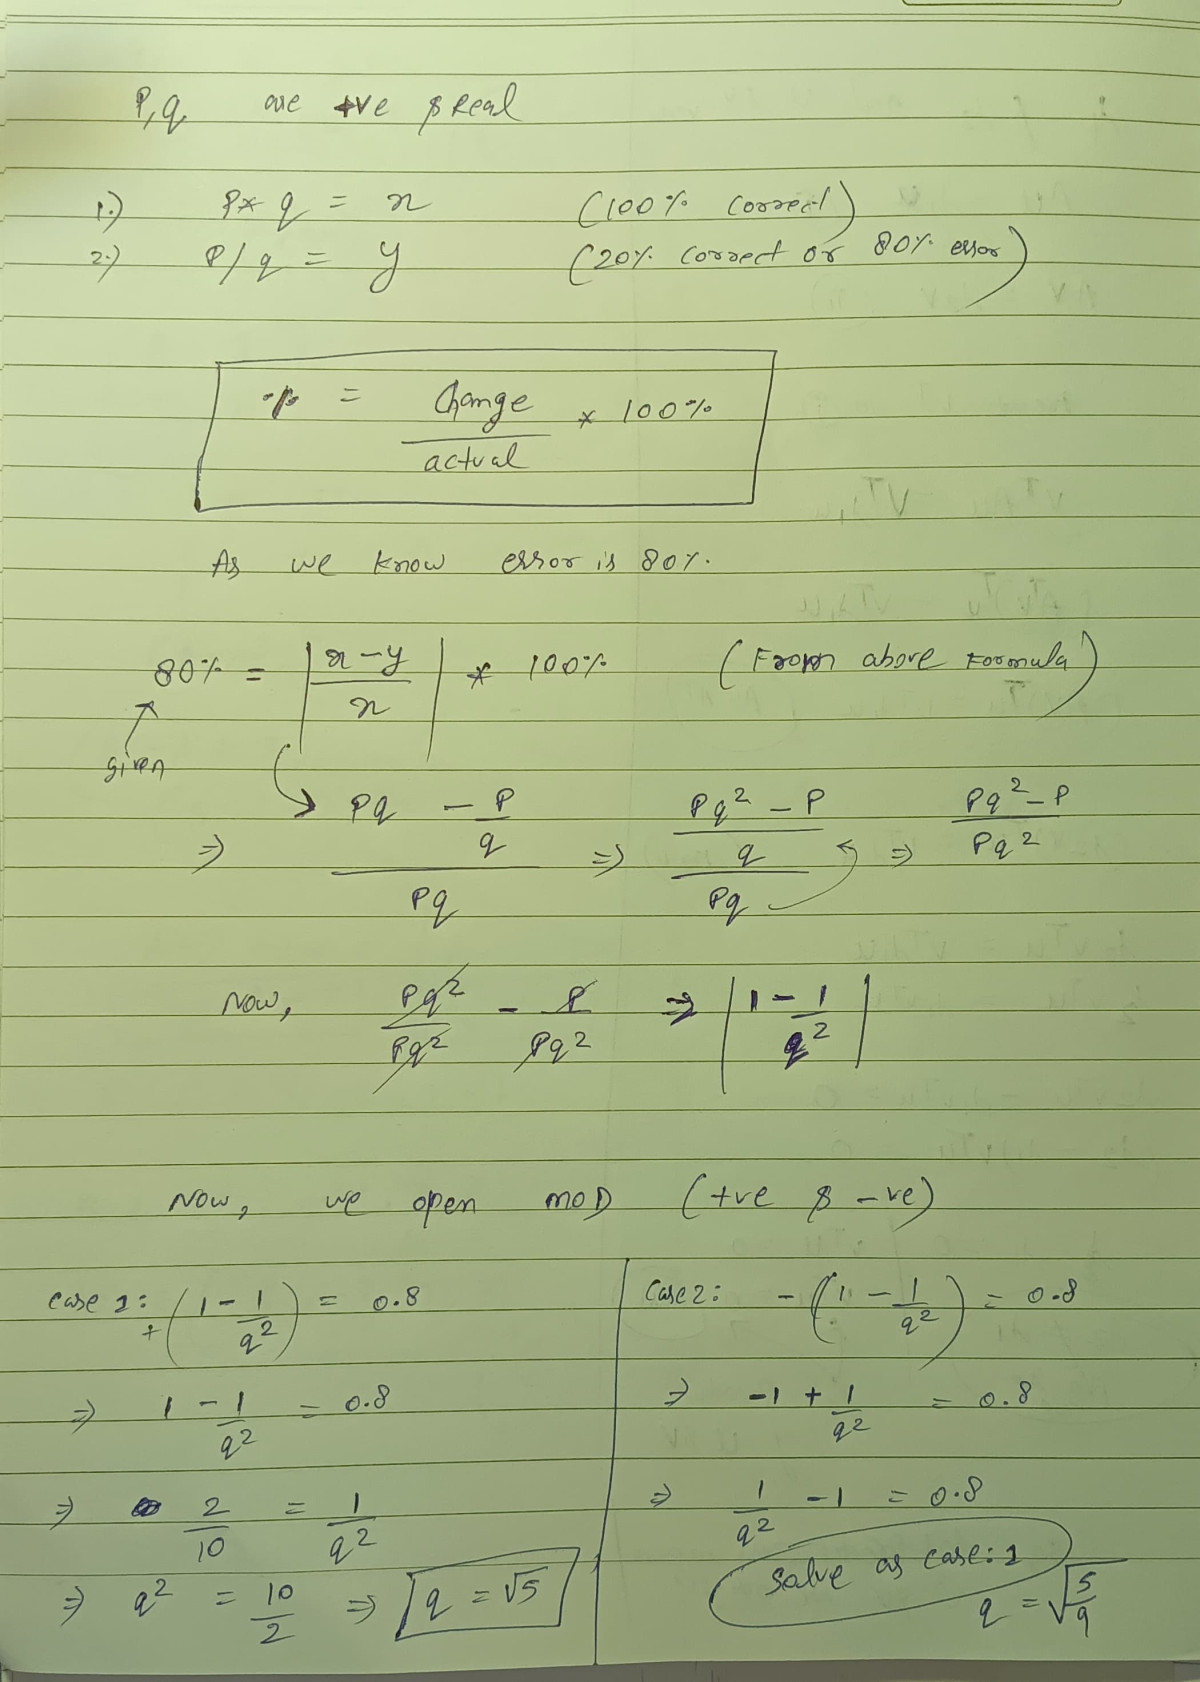 P,q are +ve & Real
1.) P* q = x (100% correct)
2.) P/q = y (20% correct or 80% error)
% = Change/actual * 100%
As we know error is 80%.
80% = |x-y/x| * 100% (From above Formula)
given
⇒ Pq - P/q / Pq ⇒ Pq² - P/q / Pq ⇒ Pq² - P / Pq²
Now, Pq²/Pq² - P/Pq² ⇒ |1 - 1/q²|
Now, we open MOD (+ve & -ve)
Case 1: +(1 - 1/q²) = 0.8
⇒ 1 - 1/q² = 0.8
⇒ 2/10 = 1/q²
⇒ q² = 10/2 ⇒ q = √5
Case 2: -(1 - 1/q²) = 0.8
⇒ -1 + 1/q² = 0.8
⇒ 1/q² - 1 = 0.8
Solve as case: 1
q = √5/9